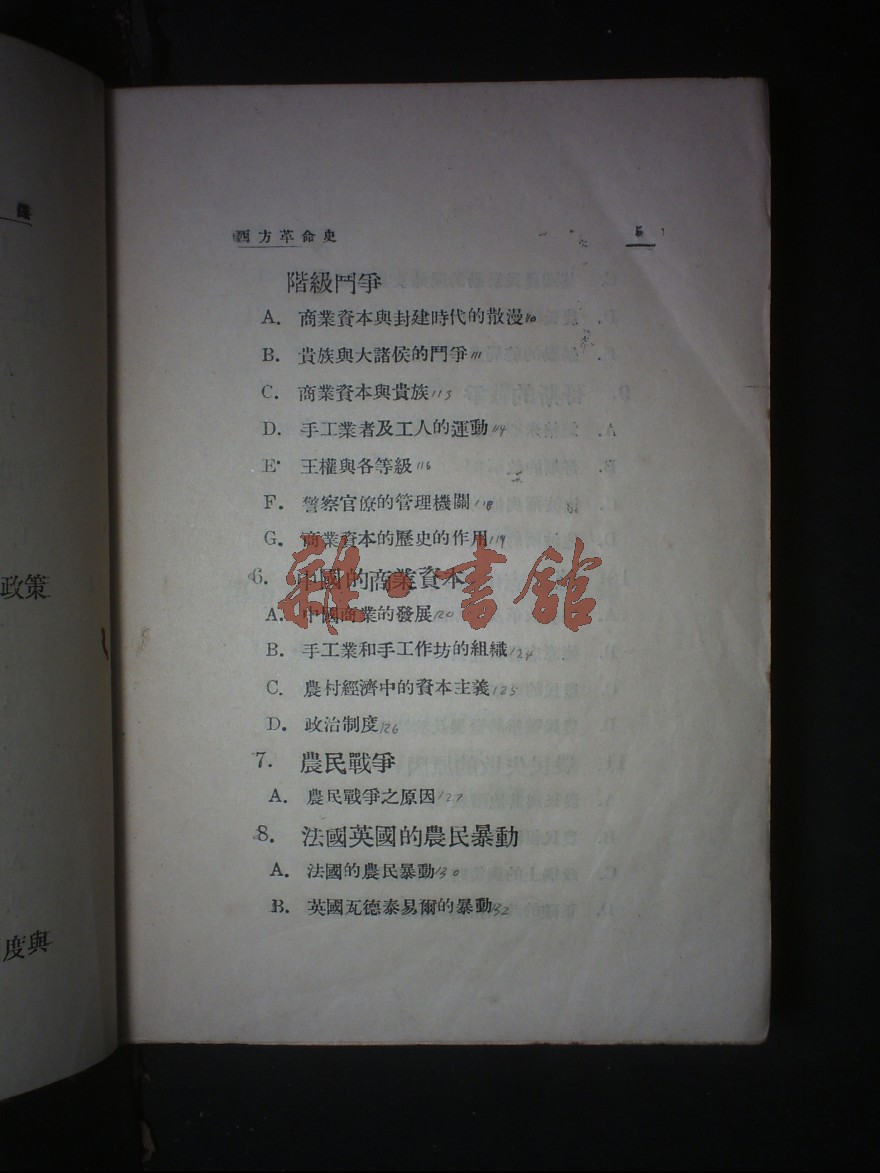 政策
度與
西方革命史 5
階級鬥爭
A. 商業資本與封建時代的散漫110
B. 貴族與大諸侯的鬥爭111
C. 商業資本與貴族113
D. 手工業者及工人的運動114
E 王權與各等級116
F. 警察官僚的管理機關118
G. 商業資本的歷史的作用119
6. 中國的商業資本
A. 中國商業的發展120
B. 手工業和手工作坊的組織124
C. 農村經濟中的資本主義125
D. 政治制度126
7. 農民戰爭
A. 農民戰爭之原因127
8. 法國英國的農民暴動
A. 法國的農民暴動130
B. 英國瓦德泰易爾的暴動132
雜·書館